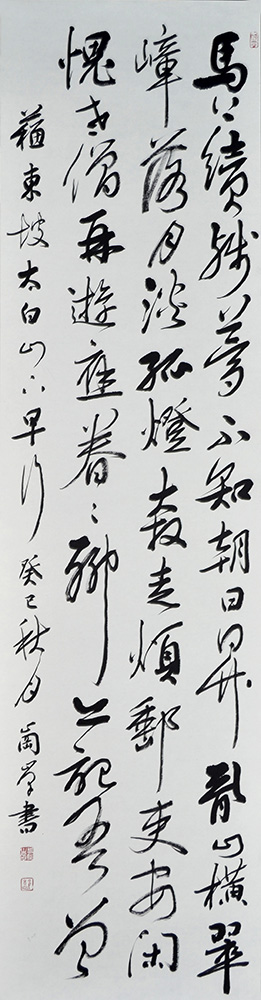 馬上續殘夢不知朝日昇亂山橫翠
嶂落月淡孤燈奔走煩郵吏安閑
愧老僧再遊應眷〻聊亦記吾曾
蘇東坡太白山下早行 癸巳秋月 書